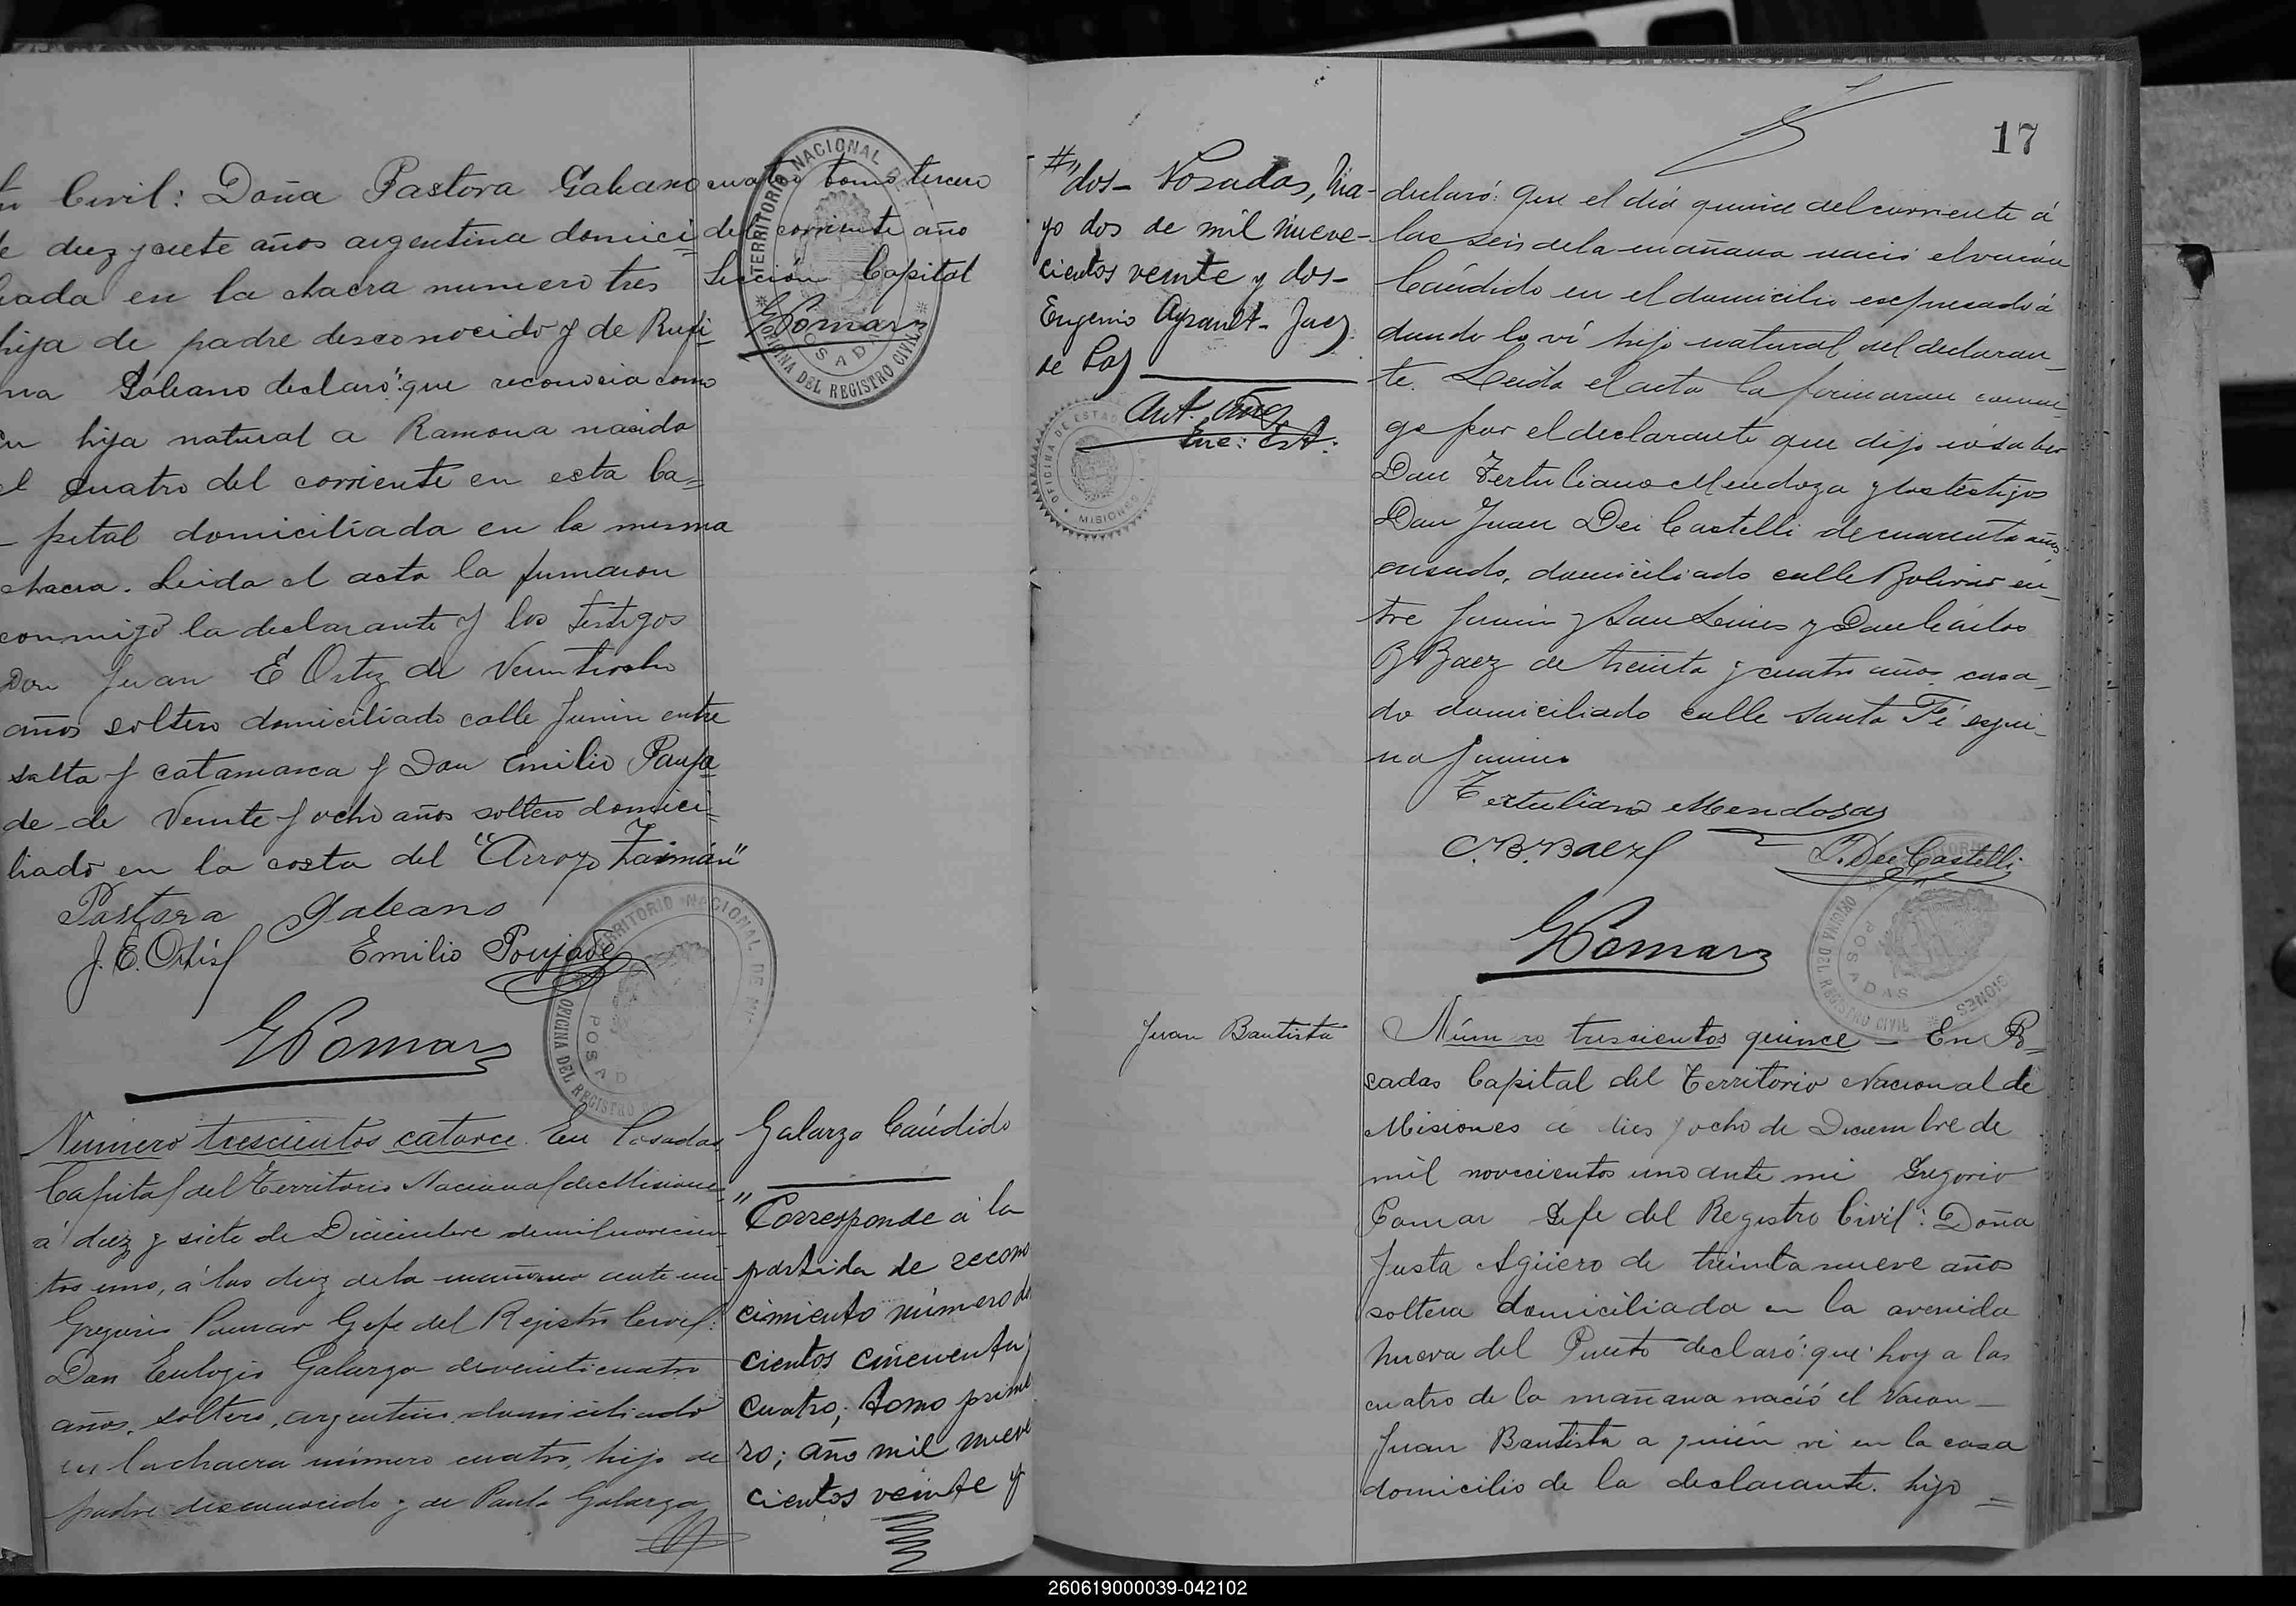 Civil: Doña Pastora Galeano
de diez y siete años argentina domici
liada en la chacra numero tres
hija de padre desconocido y de Rufi
na Galeano declaró: que reconocia como
hija natural a Ramona nacida
el cuatro del corriente en esta Ca=
pital domiciliada en la misma
chacra. Leida el acta la firmaron
conmigo la declarante y los testigos
Don Juan E Ortiz de Veintiocho
años soltero domiciliado calle Junin entre
salta y catamarca y Don Emilio Pouja
de de Veinte y ocho años soltero domici=
liado en la costa del "Arroyo Zaimán"
Pastora Galeano
J. E. Ortís
Emilio Poujade
G Pomar
TERRITORIO NACIONAL DE MI
OFICINA DEL REGISTRO
POSAD
cuatro tomo tercero
del corriente año
Sección Capital
G Pomar
TERRITORIO NACIONAL
POSADA
OFICINA DEL REGISTRO CIVIL
Numero trescientos catorce. En Posadas
Capital del Territorio Nacional de Misiones
á diez y siete de Diciembre de mil novecien
tos uno, á las diez de la mañana ante mi
Gregorio Pomar Gefe del Registro Civil:
Don Eulogio Galarza de veinticuatro
años, soltero, argentino domiciliado
en la chacra número cuatro, hijo de
padre desconocido y de Paula Galarza
Galarza Cándido
"Corresponde á la
partida de recono
cimiento número dos
cientos cincuenta y
cuatro; tomo prime
ro; año mil nueve
cientos veinte y
17
#" dos- Posadas, Ma-
yo dos de mil nueve-
cientos veinte y dos-
Eugenio Juez
de Paz
Enc: Est.
OFICINA DE ESTAD
MISIONES
declaró: que el día quince del corriente á
las seis de la mañana nació el varón
Cándido en el domicilio expresado á
donde lo ví hijo natural del declaran_
te. Leida el acta la firmaron conmi_
go por el declarante que dijo no saber
Don Tertuliano Mendoza y los testigos
Don Juan Dei Castelli de cuarenta años
casado, domiciliado calle Bolivar en_
tre Junin y San Luis y Don Carlos
B Baez de treinta y cuatro años casa_
do domiciliado calle Santa Fé esqui_
na Junin
Tertuliano Mendosa
C. B. Baez
J. Dei Castelli
G Pomar
OFICINA DEL REGISTRO CIVIL
POSADAS
MISIONES
Juan Bautista
Número trescientos quince _ En Po=
sadas Capital del Territorio Nacional de
Misiones á dies y ocho de Diciembre de
mil novecientos uno ante mi Gregorio
Pomar Gefe del Registro Civil: Doña
Justa Agüero de treinta nueve años
soltera domiciliada en la avenida
nueva del Puerto declaró: que hoy a las
cuatro de la mañana nació el Varon _
Juan Bautista a quién vi en la casa
domicilio de la declarante. hijo =
260619000039-042102